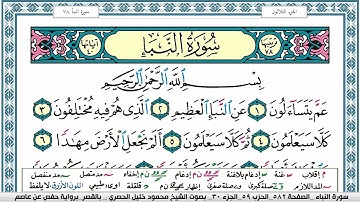 الجزء الثلاثون
سورة النبأ ٧٨
ترتيبها ٧٨
سُورَةُ النَّبَإِ
آياتها ٤٠
بِسْمِ اللَّهِ الرَّحْمَٰنِ الرَّحِيمِ
عَمَّ يَتَسَاءَلُونَ ١ عَنِ النَّبَإِ الْعَظِيمِ ٢ الَّذِي هُمْ فِيهِ مُخْتَلِفُونَ ٣
كَلَّا سَيَعْلَمُونَ ٤ ثُمَّ كَلَّا سَيَعْلَمُونَ ٥ أَلَمْ نَجْعَلِ الْأَرْضَ مِهَادًا ٦
سورة النباء الصفحة ٥٨٢ الحزب ٥٩ الجزء ٣٠ بصوت الشيخ محمود خليل الحصري بالقصر برواية حفص عن عاصم